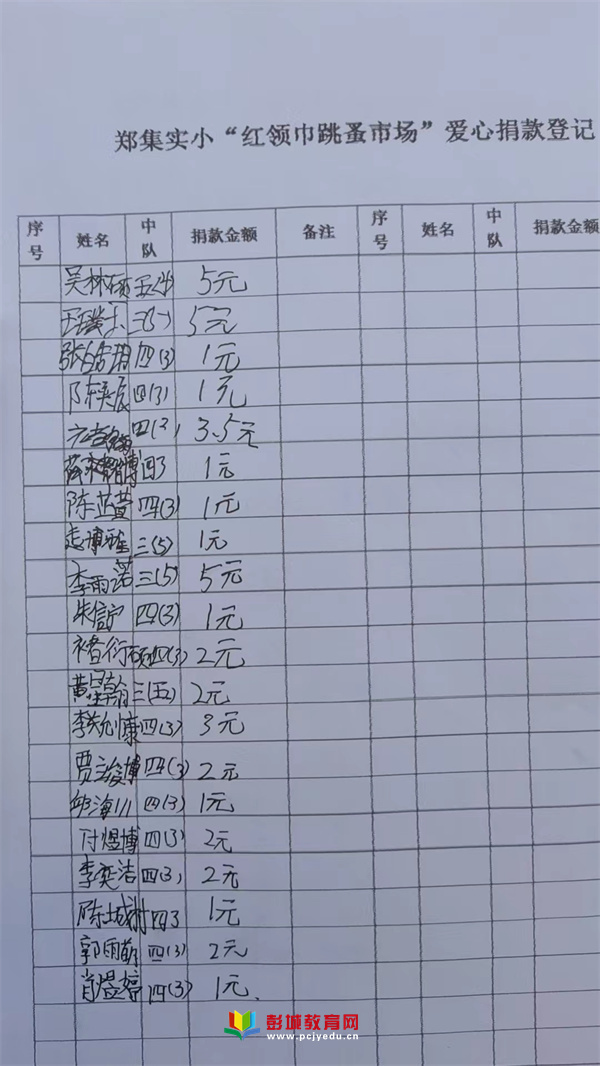 郑集实小“红领巾跳蚤市场”爱心捐款登记
序号 姓名 中队 捐款金额 备注 序号 姓名 中队 捐款金额
吴林硕 5元
三(5) 5元
四(3) 1元
陈奕辰 四(3) 1元
3.5元
博 四3 1元
陈芷萱 四(3) 1元
三(5) 1元
李雨诺 三(5) 5元
朱信宁 四(3) 1元
褚衍硕 四(3) 2元
黄星翰 三(五) 2元
李 康 四(3) 3元
贾立俊博 四(3) 2元
邹海川 四(3) 1元
付煜博 四(3) 2元
李奕洁 四(3) 2元
陈 四3 1元
郭雨 四(3) 2元
肖煜婷 四(3) 1元.
彭城教育网
www.pcjyedu.cn